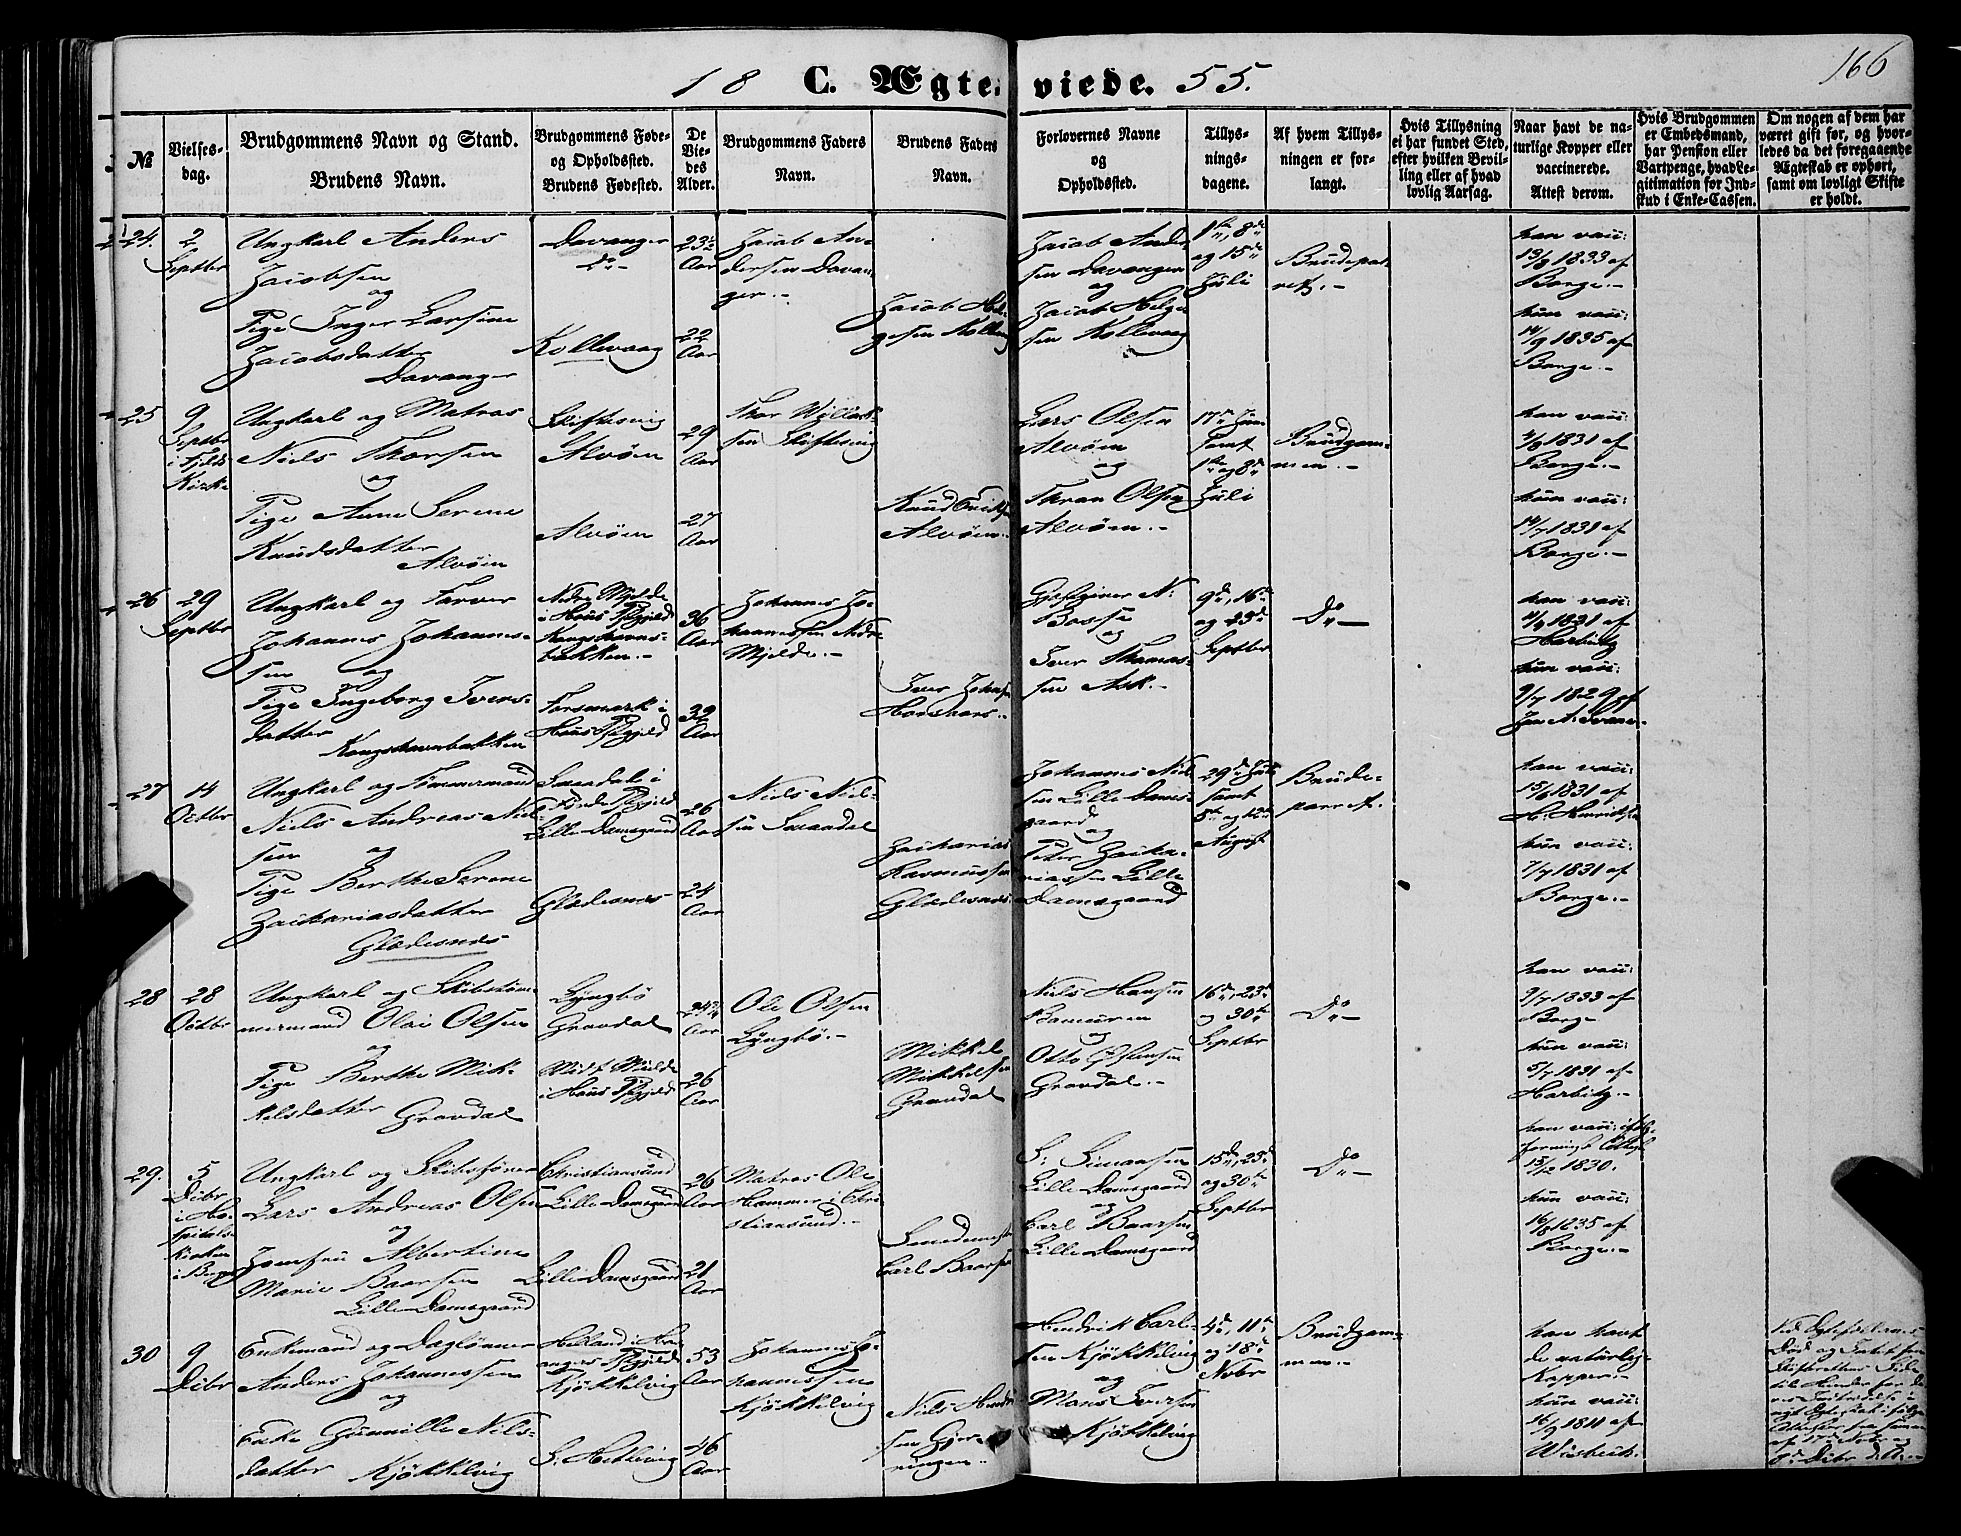 166
18 C. Ægte viede. 55.
№
Vielses-
dag.
Brudgommens Navn og Stand.
Brudens Navn.
Brudgommens Føde-
og Opholdssted.
Brudens Fødested.
De
Vie-
des
Alder.
Brudgommens Faders
Navn.
Brudens Faders
Navn.
Forlovernes Navne
og
Opholdssted.
Tillys-
nings-
dagene.
Af hvem Tillys-
ningen er for-
langt.
Hvis Tillysning
ei har fundet Sted,
efter hvilken Bevil-
ling eller af hvad
lovlig Aarsag.
Naar havt de na-
turlige Kopper eller
vaccinerede.
Attest derom.
Hvis Brudgommen
er Embedsmand,
har Pension eller
Vartpenge, hvad Le-
gitimation for Ind-
skud i Enke-Cassen.
Om nogen af dem har
været gift før, og hvor-
ledes da det foregaaende
Ægteskab er ophørt,
samt om lovligt Skifte
er holdt.
24.
2
Septbr
Ungkarl Anders
Jacobsen
og
Pige Inger Larsine
Jacobsdatter
Davanger
Davanger
Do
Kollevaag
23½
Aar
22
Aar
Jacob An-
dersen Davan-
ger.-
Jacob Hel-
gesen Kollevaag
Jacob Ander-
sen Davanger
og
Jacob Helge-
sen Kollevaag
1ste, 8de
og 15de
Juli
Brudepar-
ret.-
han vacc:
13/8 1833 af
Borge.-
hun vacc:
14/9 1835 af
Borge.-
25
9
Septbr
i Fjelds
Kirke
Ungkarl og Matros
Niels Thorsen
og
Pige Anne Serene
Knudsdatter
Alvøen
Skiftesvig
Alvøen
Alvøen
29
Aar
27
Aar
Thor Willas-
sen Skiftesvig
Knud Eriksen
Alvøen.-
Lars Olsen
Alvøen
og
Thran Olsen
Alvøen.-
17de Juni
samt
1ste og 8de
Juli
Brudgom-
men.-
han vacc:
4/8 1831 af
Borge.-
hun vacc:
14/7 1831 af
Borge.-
26
29
Septbr
Ungkarl og Farver
Johannes Johannes-
sen og
Pige Ingeborg Ivers-
datter
Kongshavnbakken
Nedre Mjelde
i Hous Pgjeld
Kongshavns-
bakken.-
Forsmark i
Hous Pgjeld
36
Aar
32
Aar
Johannes Jo-
hannessen Nedre
Mjelde.-
Iver Johansen
Gjestgiver N:
Bosse
og
Iver Thomas-
sen Ask.-
9de, 16de
og 23de
Septbr
Do
han vacc:
1831 af
Harbitz
hun vacc:
9/7 1829 af
27
14
Octbr
Ungkarl og Tømmermand
Niels Andreas Niel-
sen og
Pige Berthe Serene
Zachariasdatter
Gladesnes
Saadal i
Førde Pgjeld
Lille Damsgaard
Gladesnes
26
Aar
24
Aar
Niels Niel-
sen Saaadal
Zacharias
Rasmussen
Gladesnes.
Johannes Niel-
sen Lille Dams-
gaard
og
Peter Zacha-
riassen Lille
Damsgaard
29de Juli
samt
5te og 12te
August
Brude-
parret.
han vacc:
15/6 1831 af
H: Henriksen
hun vacc:
7/7 1831 af
Borge.-
28
28
Octbr
Ungkarl og Skibstøm-
mermand Olai Olsen
og
Pige Berthe Mik-
kelsdatter Gravdal
Lyngbø
Gravdal
Midt Mjelde
i Hous Pgjeld
24½
Aar
26
Aar
Ole Olsen
Lyngbø.-
Mikkel
Mikkelsen
Gravdal
Niels Hansen
og
Otto Østensen
Gravdal.-
16de, 23de
og 30te
Septbr
Do
han vacc:
9/7 1833 af
Borge
hun vacc:
5/7 1831 af
Harbitz.-
29.
5
Decbr
i Ho-
spitals-
kirken
i Bergen
Ungkarl og Skibstømmer
Lars Andreas Olsen
og
Jomfru Albertine
Marie Baarsen
Lille Damsgaard
Christiansund
Lille Damsgaard
Lille Damsgaard
26
Aar
21
Aar
Matros Ole
Hammer i Chri-
stiansund.-
Carl Baarsen
S: Simonsen
Lille Damsgaard
og
Carl Baarsen
Lille Damsgaard
15de, 23de
og 30te
Septbr
Do
han vacc: ifølg.
15/2 1830.
hun vacc:
16/8 1835 af
Borge.-
30
9
Decbr
Enkemand og Dagløner
Anders Johannessen
og
Enke Gunnille Nils-
datter Kjøkkelvig
Helland i Ham-
angers Pgjeld
Kjøkkelvig
S. Hetlevig
53
Aar
46
Aar
Johannes Jo-
hannessen
Kjøkkelvig
Niels Hendrik-
sen Gjer-
ringen.-
Hendrik Carl-
sen Kjøkkelvig
og
Mons Iversen
Kjøkkelvig
4de, 11te
og 18de
Novbr
Brudgom-
men.-
han havt
de naturlig-
Kopper.-
hun vacc:
16/9 1811 af
Ved Ægtefællernes
Død og Attest fra
Skifteretten